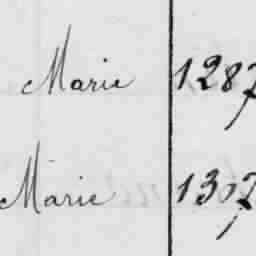 Marie 1287
Marie 1307